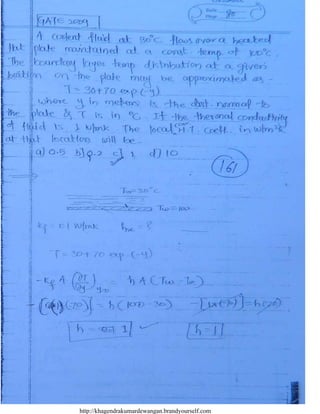 Date
Page 80
GATE 2009
A coolent fluid at 30°C flows over a heated
flat plate maintained at a const. temp. of 100°C.
The boundary layer temp. distribution at a given
location on the plate may be approximated as -
T = 30+70 exp(-y)
where y in meters is the dist. normal to
the plate & T is in °C. If the thermal conductivity
of fluid is 1 W/mk. The local H.T. coeff. in w/m²k
at that location will be.
a) 0.5 b) 0.2 c) 1 d) 10
161
T∞=30°C
Tw=100
T = 30+70 exp(-y)
-kf A (∂T/∂y)y=0 = h A (Tw - T∞)
h = 1
h=1
http://khagendrakumardewangan.brandyourself.com